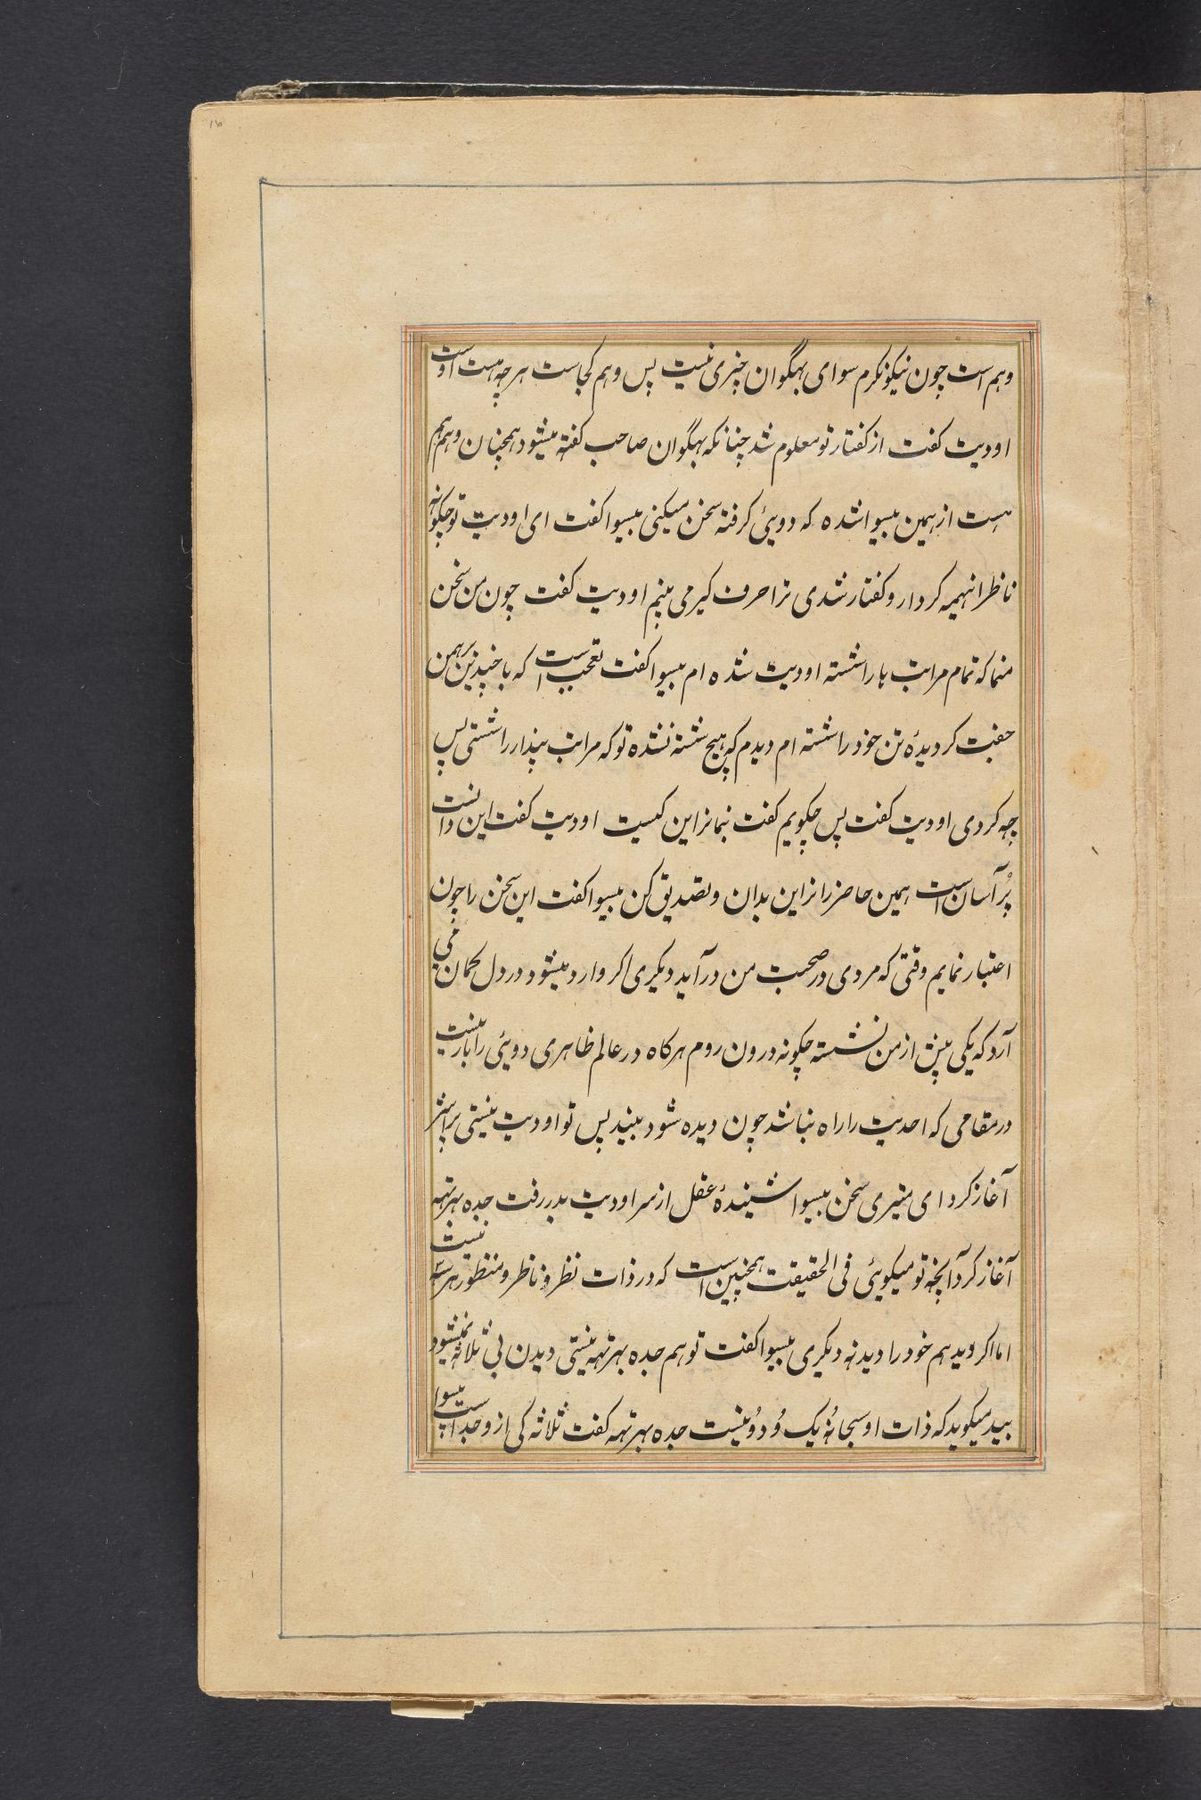 وهم است چون نیکو نکرم سوای بهگوان چیزی نیست پس وهم کجاست هر چه هست اوست
اودیت کفت از کفتار تو معلوم شد چنانکه بهگوان صاحب کفته میشود همچنان وهم هم
هست از همین بیسوا شده که دویٔی کرفته سخن میکنی بیسوا کفت ای اودیت تو چکونه
ناظر اینهمه کردار و کفتار شدی ترا حرف کیر می بینم اودیت کفت چون من سخن
منما که تمام مراتب با را شسته اودیت شده ام بیسوا کفت تعجب است که با چندین برهمن
جفت کردیدهٔ تن خود را شسته ام دیدم که هیچ شسته نشده تو که مراتب پندار را شستی پس
چه کردی اودیت کفت پس چکویم کفت بنما نر این کیست اودیت کفت این دانست
پُر آسان است همین حاضر را نراین بدان و تصدیق کن بیسوا کفت این سخن را چون
اعتبار نمایم وقتی که مردی در صحبت من درآید دیکری اکر وارد میشود در دل کمان می
آرد که یکی پیش از من نشسته چکونه درون روم هرکاه در عالم ظاهری دویٔی را بار نیست
در مقامی که احدیت را راه نباشد چون دیده شود ببنید پس تو اودیت نیستی پراشر
آغاز کرد ای میتری سخن بیسوا شنیندهٔ عقل از سر اودیت بدر رفت جده بهرتهه
آغاز کرد آنچه تو میکویٔی فی الحقیقت همچنین است که در ذات نظر و ناظر و منظور هر سه نیست
اما اکر وید هم خود را دید نه دیکری بیسوا کفت تو هم جده بهرتهه نیستی دیدن بی ثلاثه نمیشود
بید میکوید که ذات او سبحانهٔ یک وُ دوُ نیست جده بهرتهه کفت ثلاثه کی از و جداست بیسوا